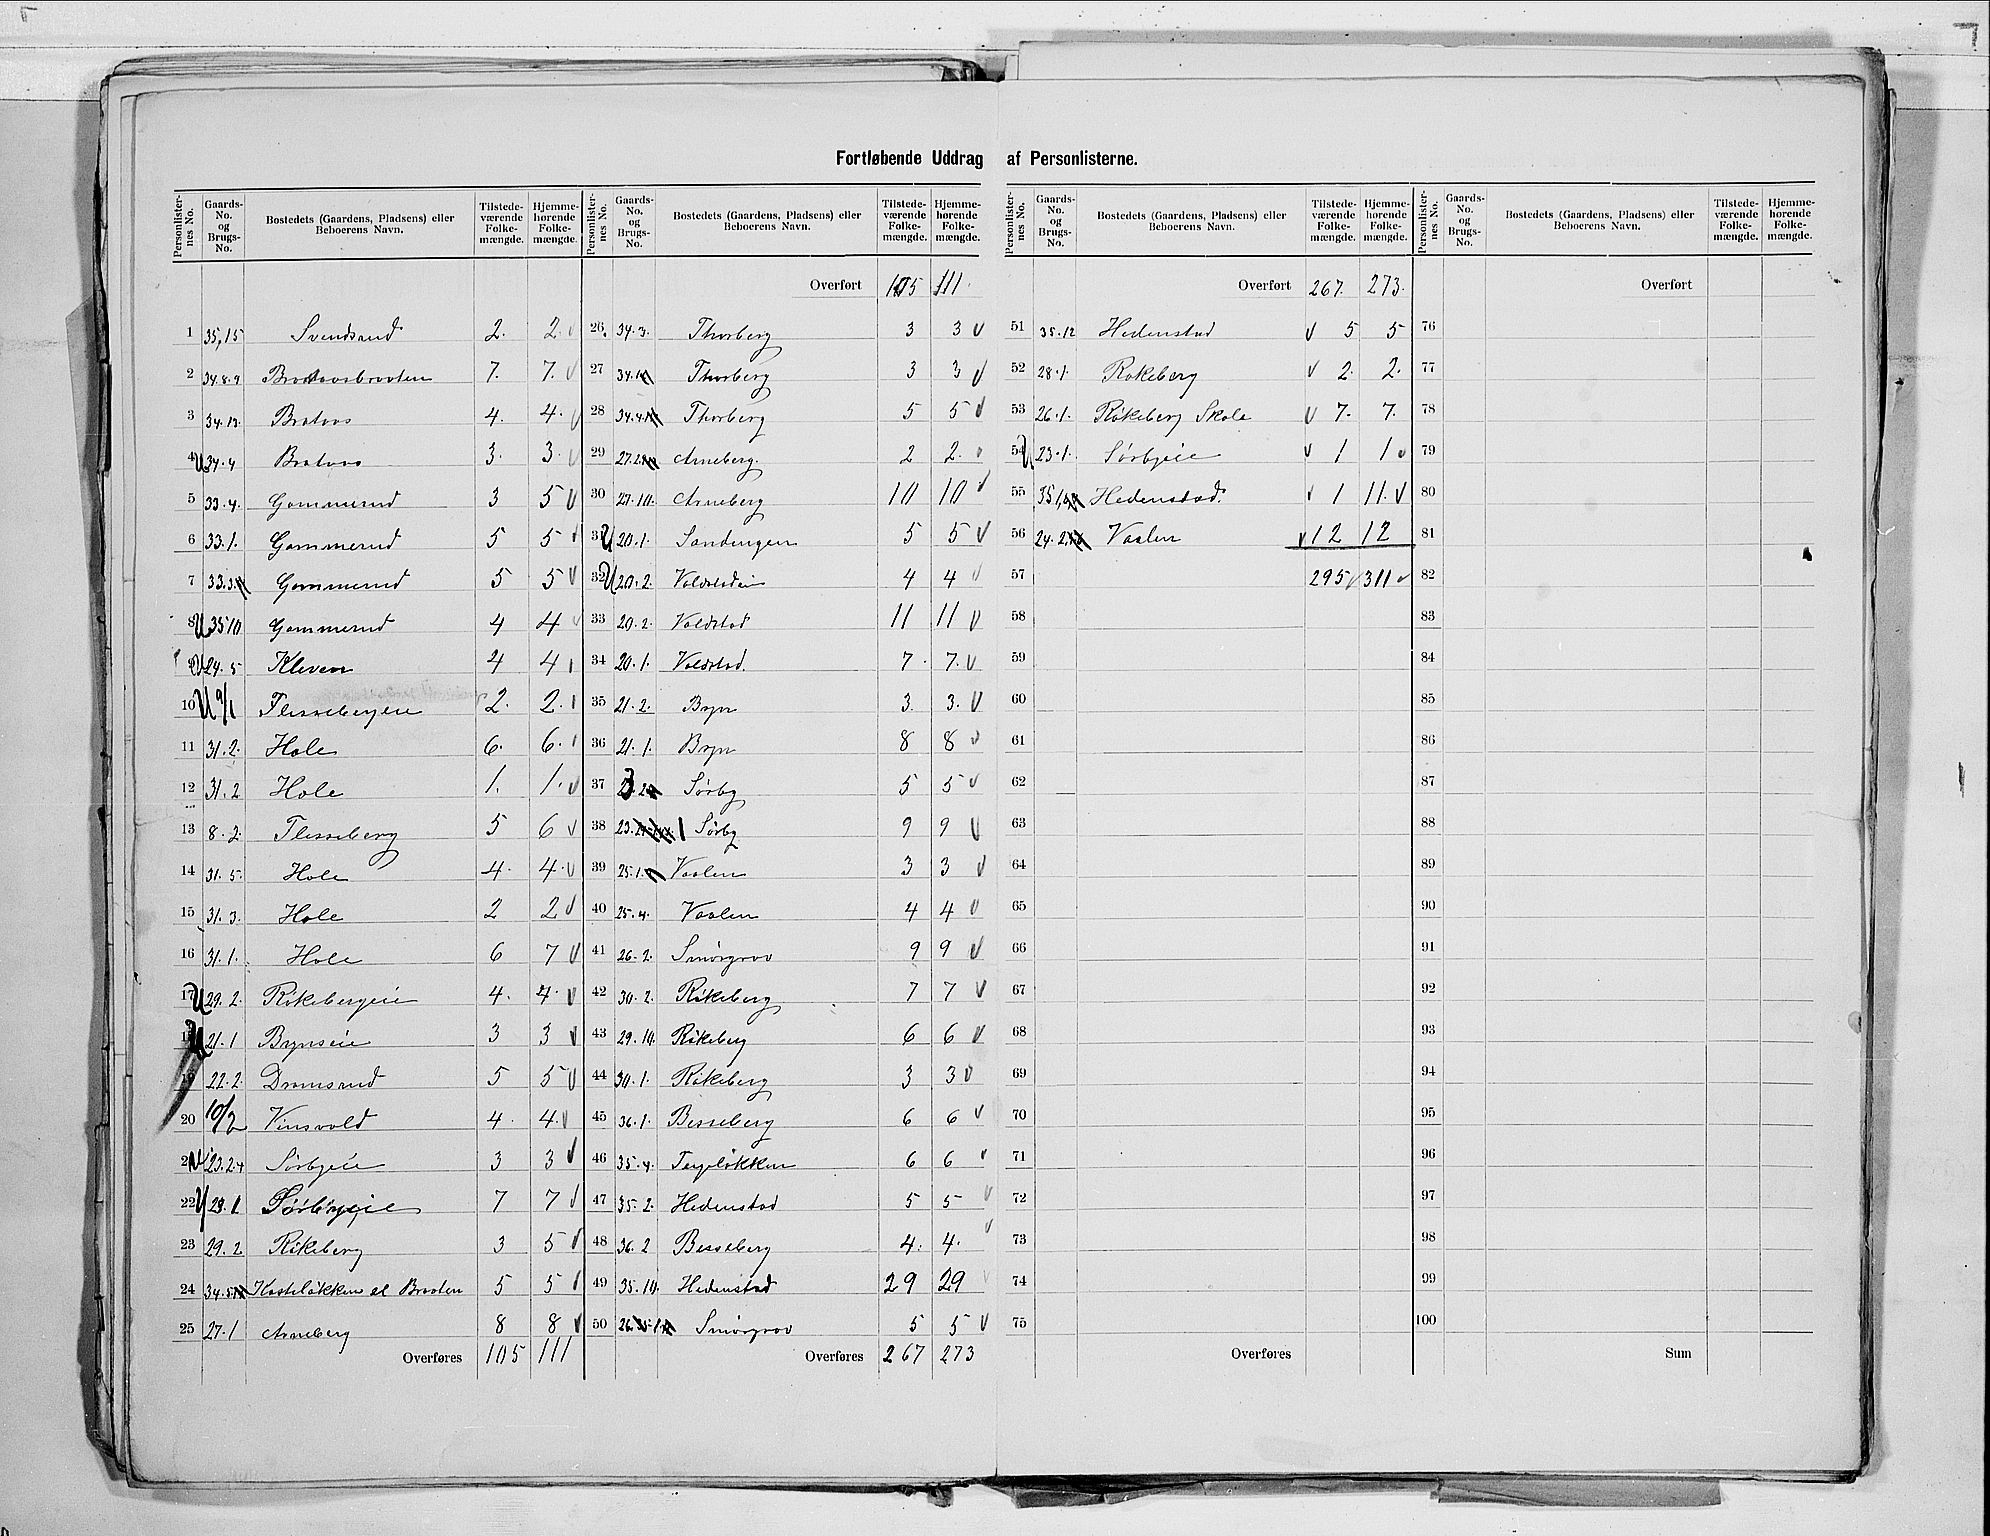 Fortløbende Uddrag af Personlisterne.
Personlisternes No. | Gaards-No. og Brugs-No. | Bostedets (Gaardens, Pladsens) eller Beboerens Navn. | Tilstedeværende Folkemængde. | Hjemmehørende Folkemængde.
1 35,15 Svendsrud 2. 2.
2 34.8.9 7. 7.
3 34.13. Brataas 4. 4.
4 34.4 Brataas 3. 3.
5 33.4. Gommerud 3 5
6 33.1. Gommerud 5 5
7 33.3. Gommerud 5 5
8 35.10 Gommerud 4 4
9 24.5 Kleven 4 4
10 9/1 Flessebergeie 2. 2.
11 31.2. Hole 6. 6.
12 31.2 Hole 1. 1.
13 8.2. Flesseberg 5 6
14 31.5. Hole 4. 4.
15 31.3. Hole 2 2
16 31.1. Hole 6 7
17 29.2. Røkebergeie 4. 4.
18 21.1 Brynseie 3 3
19 22.2. Dramsrud 5 5
20 10/2 Vinsvold 4. 4.
21 23.2.4 Sørbyeie 3 3
22 23.1 Sørbyeie 7 7
23 29.2 Røkeberg 3 5
24 34.5. Kasteløkken el Braaten 5 5
25 27.1 Arneberg 8 8
Overføres 105 111
Personlisternes No. | Gaards-No. og Brugs-No. | Bostedets (Gaardens, Pladsens) eller Beboerens Navn. | Tilstedeværende Folkemængde. | Hjemmehørende Folkemængde.
Overført 105 111.
26 34.3. Thorberg 3 3
27 34.1 Thorberg 3 3
28 34.4 Thorberg 5 5
29 27.2 Arneberg. 2 2.
30 27.10. Arneberg 10 10
31 20.1. Sandengen 5 5
32 20.2. 4 4
33 20.2. Valdstad 11 11
34 20.1. Valdstad. 7. 7.
35 21.2. Bryn 3. 3.
36 21.1. Bryn 8 8
37 23.2 Sørby 5 5
38 23. 1 Sørby 9 9
39 25.1. Vaalen 3 3
40 25.4. Vaalen 4 4
41 26.2. Smørgrav 9 9
42 30.2. Røkeberg 7 7
43 29.10. Røkeberg 6 6
44 30.1. Røkeberg 3 3
45 36.1. Besseberg 6 6
46 35.4. Teigeløkken 6 6
47 35.2. Hedenstad 5 5
48 36.2 Besseberg 4. 4.
49 35.10. Hedenstad 29 29
50 26. Smørgrav 5 5
Overføres 267 273
Personlisternes No. | Gaards-No. og Brugs-No. | Bostedets (Gaardens, Pladsens) eller Beboerens Navn. | Tilstedeværende Folkemængde. | Hjemmehørende Folkemængde.
Overført 267. 273.
51 35.12 Hedenstad 5 5
52 28.1. Røkeberg 2. 2.
53 26.1. Røkeberg Skole 7. 7.
54 23.1. Sørbyeie 1 1
55 35.1, Hedenstad. 1 11.
56 24.2. Vaalen 12 12
57 295 311
58
59
60
61
62
63
64
65
66
67
68
69
70
71
72
73
74
75
Overføres
Personlisternes No. | Gaards-No. og Brugs-No. | Bostedets (Gaardens, Pladsens) eller Beboerens Navn. | Tilstedeværende Folkemængde. | Hjemmehørende Folkemængde.
Overført
76
77
78
79
80
81
82
83
84
85
86
87
88
89
90
91
92
93
94
95
96
97
98
99
100
Sum